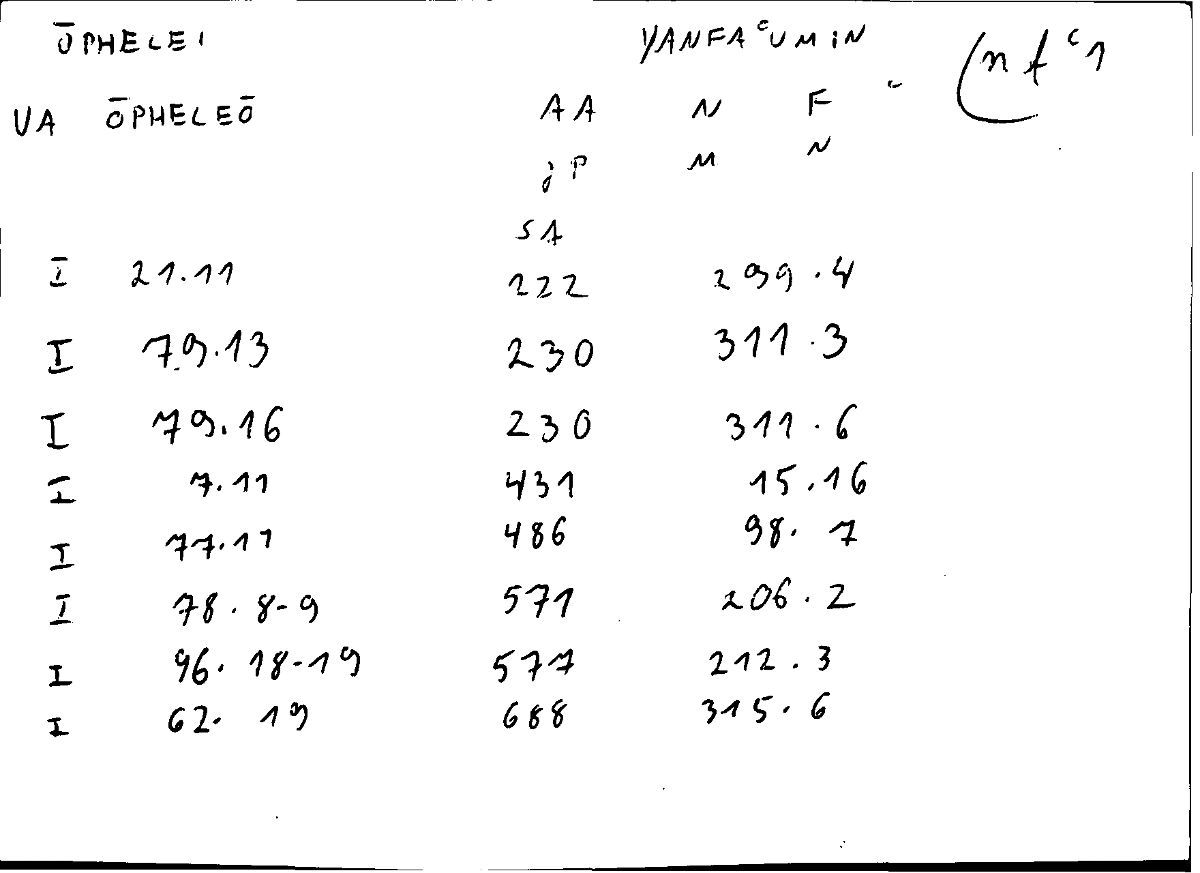 ŌPHELEI YANFAʿUMIN (nfʿ1
VA ŌPHELEŌ AA N F ʿ
jP M N
SA
I 21.11 222 299.4
I 79.13 230 311.3
I 79.16 230 311.6
I 7.11 431 15.16
I 77.11 486 98.7
I 78.8-9 571 206.2
I 96.18-19 577 212.3
I 62.19 688 315.6